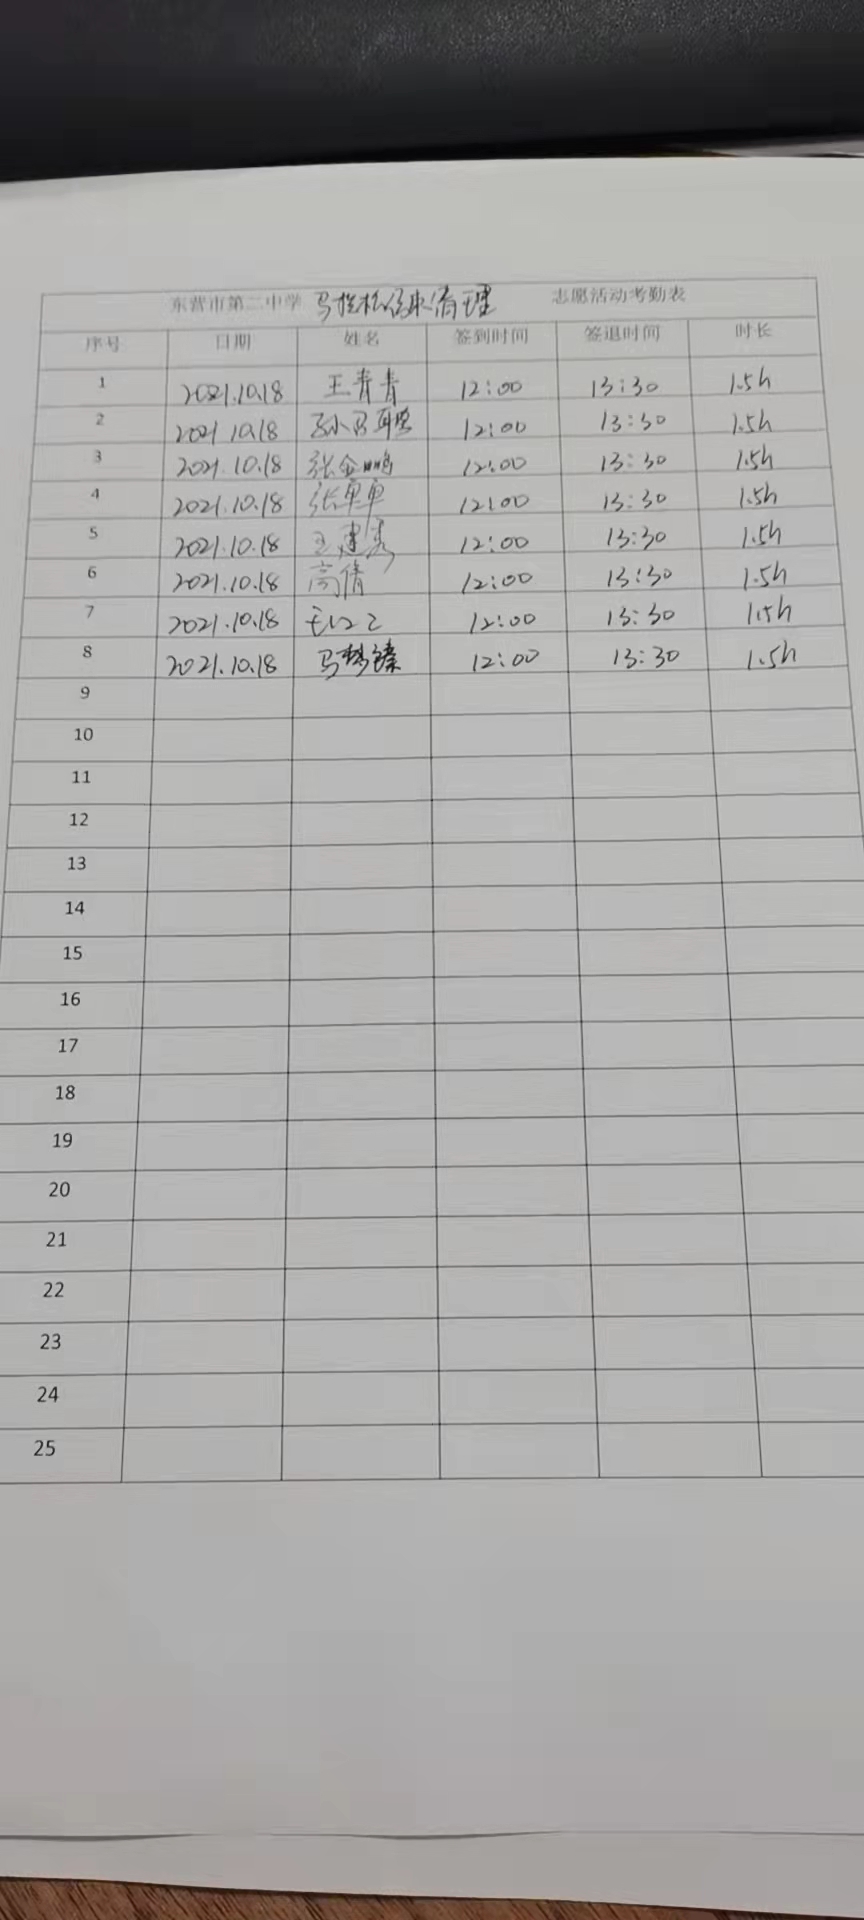 东营市第二中学 马拉松结束清理 志愿活动考勤表
序号 日期 姓名 签到时间 签退时间 时长
1 2021.10.18 王青青 12:00 13:30 1.5h
2 2021.10.18 12:00 13:30 1.5h
3 2021.10.18 张金鹏 12:00 13:30 1.5h
4 2021.10.18 张单单 12:00 13:30 1.5h
5 2021.10.18 王建秀 12:00 13:30 1.5h
6 2021.10.18 高倩 12:00 13:30 1.5h
7 2021.10.18 12:00 13:30 1.5h
8 2021.10.18 马梦臻 12:00 13:30 1.5h
9
10
11
12
13
14
15
16
17
18
19
20
21
22
23
24
25